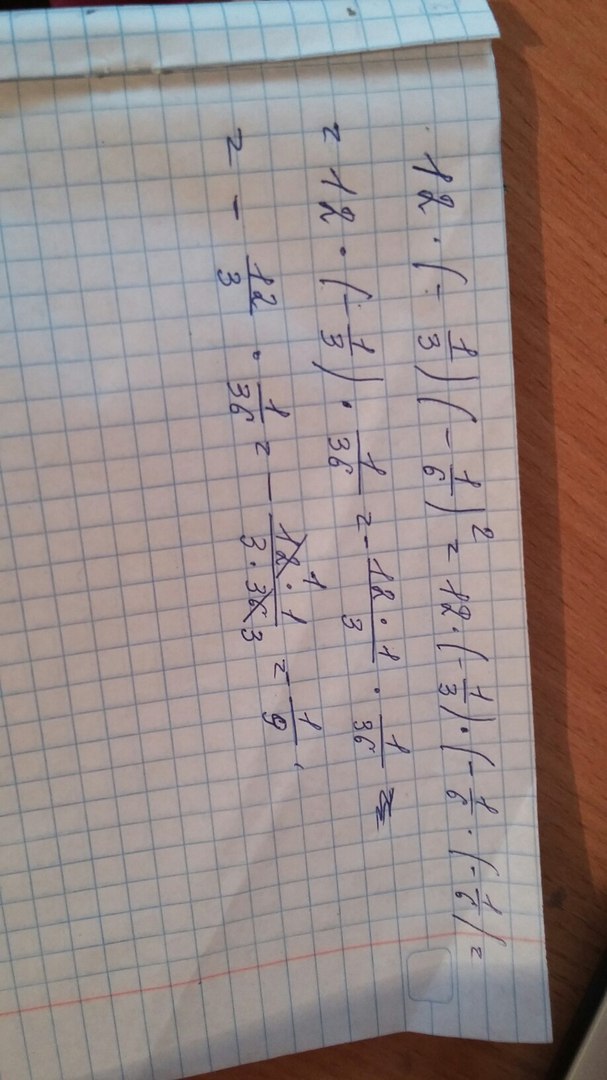 12 · (- 1/3) (- 1/6)² = 12 · (- 1/3) · (- 1/6 · (- 1/6) =
= 12 · (- 1/3) · 1/36 = - 12 · 1/3 · 1/36
= - 12/3 · 1/36 = - 12 · 1/3 · 36 = - 1/9 .